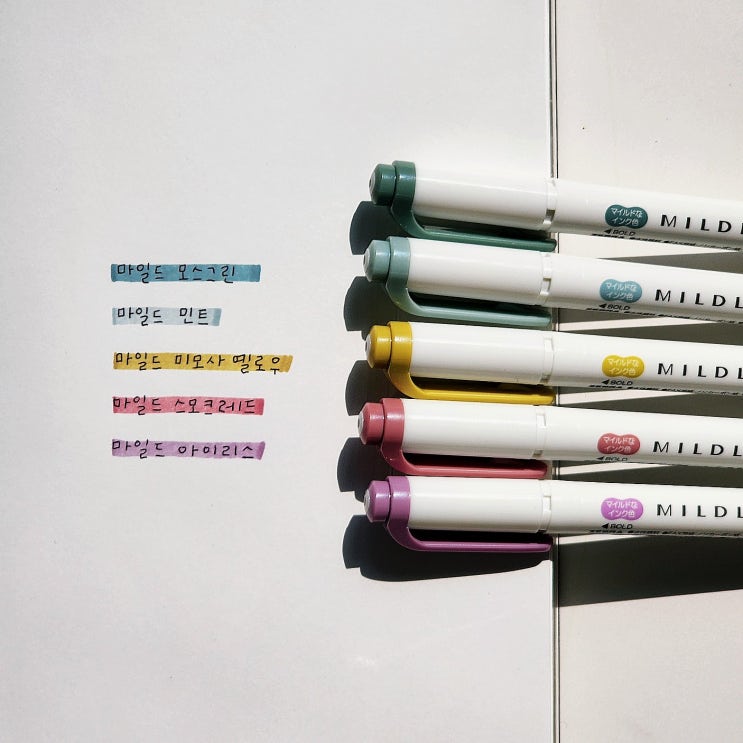 마일드 모스그린
마일드 민트
마일드 미모사 옐로우
마일드 스모크레드
마일드 아이리스
マイルドな
インク色
◀BOLD
MILDL
マイルドな
インク色
◀BOLD
MILDL
マイルドな
インク色
◀BOLD
MILDL
マイルドな
インク色
◀BOLD
MILDL
マイルドな
インク色
◀BOLD
MILDL